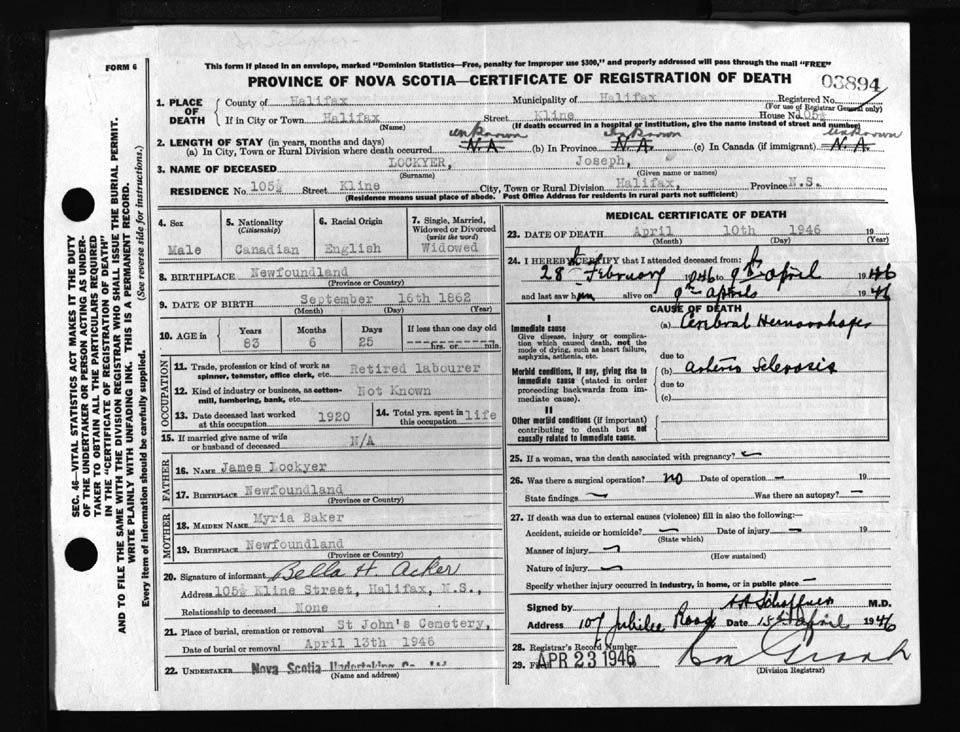 FORM 6
This form if placed in an envelope, marked "Dominion Statistics—Free, penalty for improper use $300," and properly addressed will pass through the mail "FREE"
PROVINCE OF NOVA SCOTIA—CERTIFICATE OF REGISTRATION OF DEATH
03894
1. PLACE OF DEATH
County of Halifax Municipality of Halifax Registered No.
(For use of Registrar General only)
If in City or Town Halifax Street Kline House No. 105½
(Name) (If death occurred in a hospital or institution, give the name instead of street and number)
unknown unknown unknown
2. LENGTH OF STAY (in years, months and days)
(a) In City, Town or Rural Division where death occurred N.A. (b) In Province N.A. (c) In Canada (if immigrant) N.A.
3. NAME OF DECEASED LOCKYER, Joseph,
(Surname) (Given name or names)
RESIDENCE No. 105½ Street Kline City, Town or Rural Division Halifax, Province N.S.
(Residence means usual place of abode. Post Office Address for residents in rural parts not sufficient)
4. Sex
Male
5. Nationality
(Citizenship)
Canadian
6. Racial Origin
English
7. Single, Married, Widowed or Divorced
(write the word)
Widowed
8. BIRTHPLACE Newfoundland
(Province or Country)
9. DATE OF BIRTH September 16th 1862
(Month) (Day) (Year)
10. AGE in Years Months Days If less than one day old
83 6 25 hrs. or min.
OCCUPATION
11. Trade, profession or kind of work as spinner, teamster, office clerk, etc. Retired labourer
12. Kind of industry or business, as cotton-mill, lumbering, bank, etc. Not Known
13. Date deceased last worked at this occupation 1920
14. Total yrs. spent in this occupation life
15. If married give name of wife or husband of deceased N/A
FATHER
16. NAME James Lockyer
17. BIRTHPLACE Newfoundland
(Province or Country)
MOTHER
18. MAIDEN NAME Myria Baker
19. BIRTHPLACE Newfoundland
(Province or Country)
20. Signature of informant Bella H. Acker
Address 105½ Kline Street, Halifax, N.S.,
Relationship to deceased None
21. Place of burial, cremation or removal St John's Cemetery,
Date of burial or removal April 13th 1946
22. UNDERTAKER Nova Scotia Undertaking Co.
(Name and address)
MEDICAL CERTIFICATE OF DEATH
23. DATE OF DEATH April 10th 1946 19
(Month) (Day) (Year)
24. I HEREBY CERTIFY that I attended deceased from:
28th February 1946 to 9th April 1946
and last saw him alive on 9th April 1946
CAUSE OF DEATH
I
Immediate cause
Give disease, injury or complication which caused death, not the mode of dying, such as heart failure, asphyxia, asthenia, etc.
(a) Cerebral Hemorrhage
due to
Morbid conditions, if any, giving rise to immediate cause (stated in order proceeding backwards from immediate cause).
(b) Arterio Sclerosis
due to
(c)
II
Other morbid conditions (if important) contributing to death but not causally related to immediate cause.
25. If a woman, was the death associated with pregnancy?
26. Was there a surgical operation? no Date of operation 19
State findings Was there an autopsy?
27. If death was due to external causes (violence) fill in also the following:
Accident, suicide or homicide? Date of injury 19
(State which)
Manner of injury
(How sustained)
Nature of injury
Specify whether injury occurred in industry, in home, or in public place
Signed by M.D.
Address 107 Jubilee Road Date 15th April 1946
28. Registrar's Record Number
29. Filed APR 23 1946
(Division Registrar)
SEC. 46—VITAL STATISTICS ACT MAKES IT THE DUTY
OF THE UNDERTAKER OR PERSON ACTING AS UNDERTAKER TO OBTAIN ALL THE PARTICULARS REQUIRED
IN THE "CERTIFICATE OF REGISTRATION OF DEATH"
AND TO FILE THE SAME WITH THE DIVISION REGISTRAR WHO SHALL ISSUE THE BURIAL PERMIT.
WRITE PLAINLY WITH UNFADING INK. THIS IS A PERMANENT RECORD.
Every item of information should be carefully supplied. (See reverse side for instructions.)